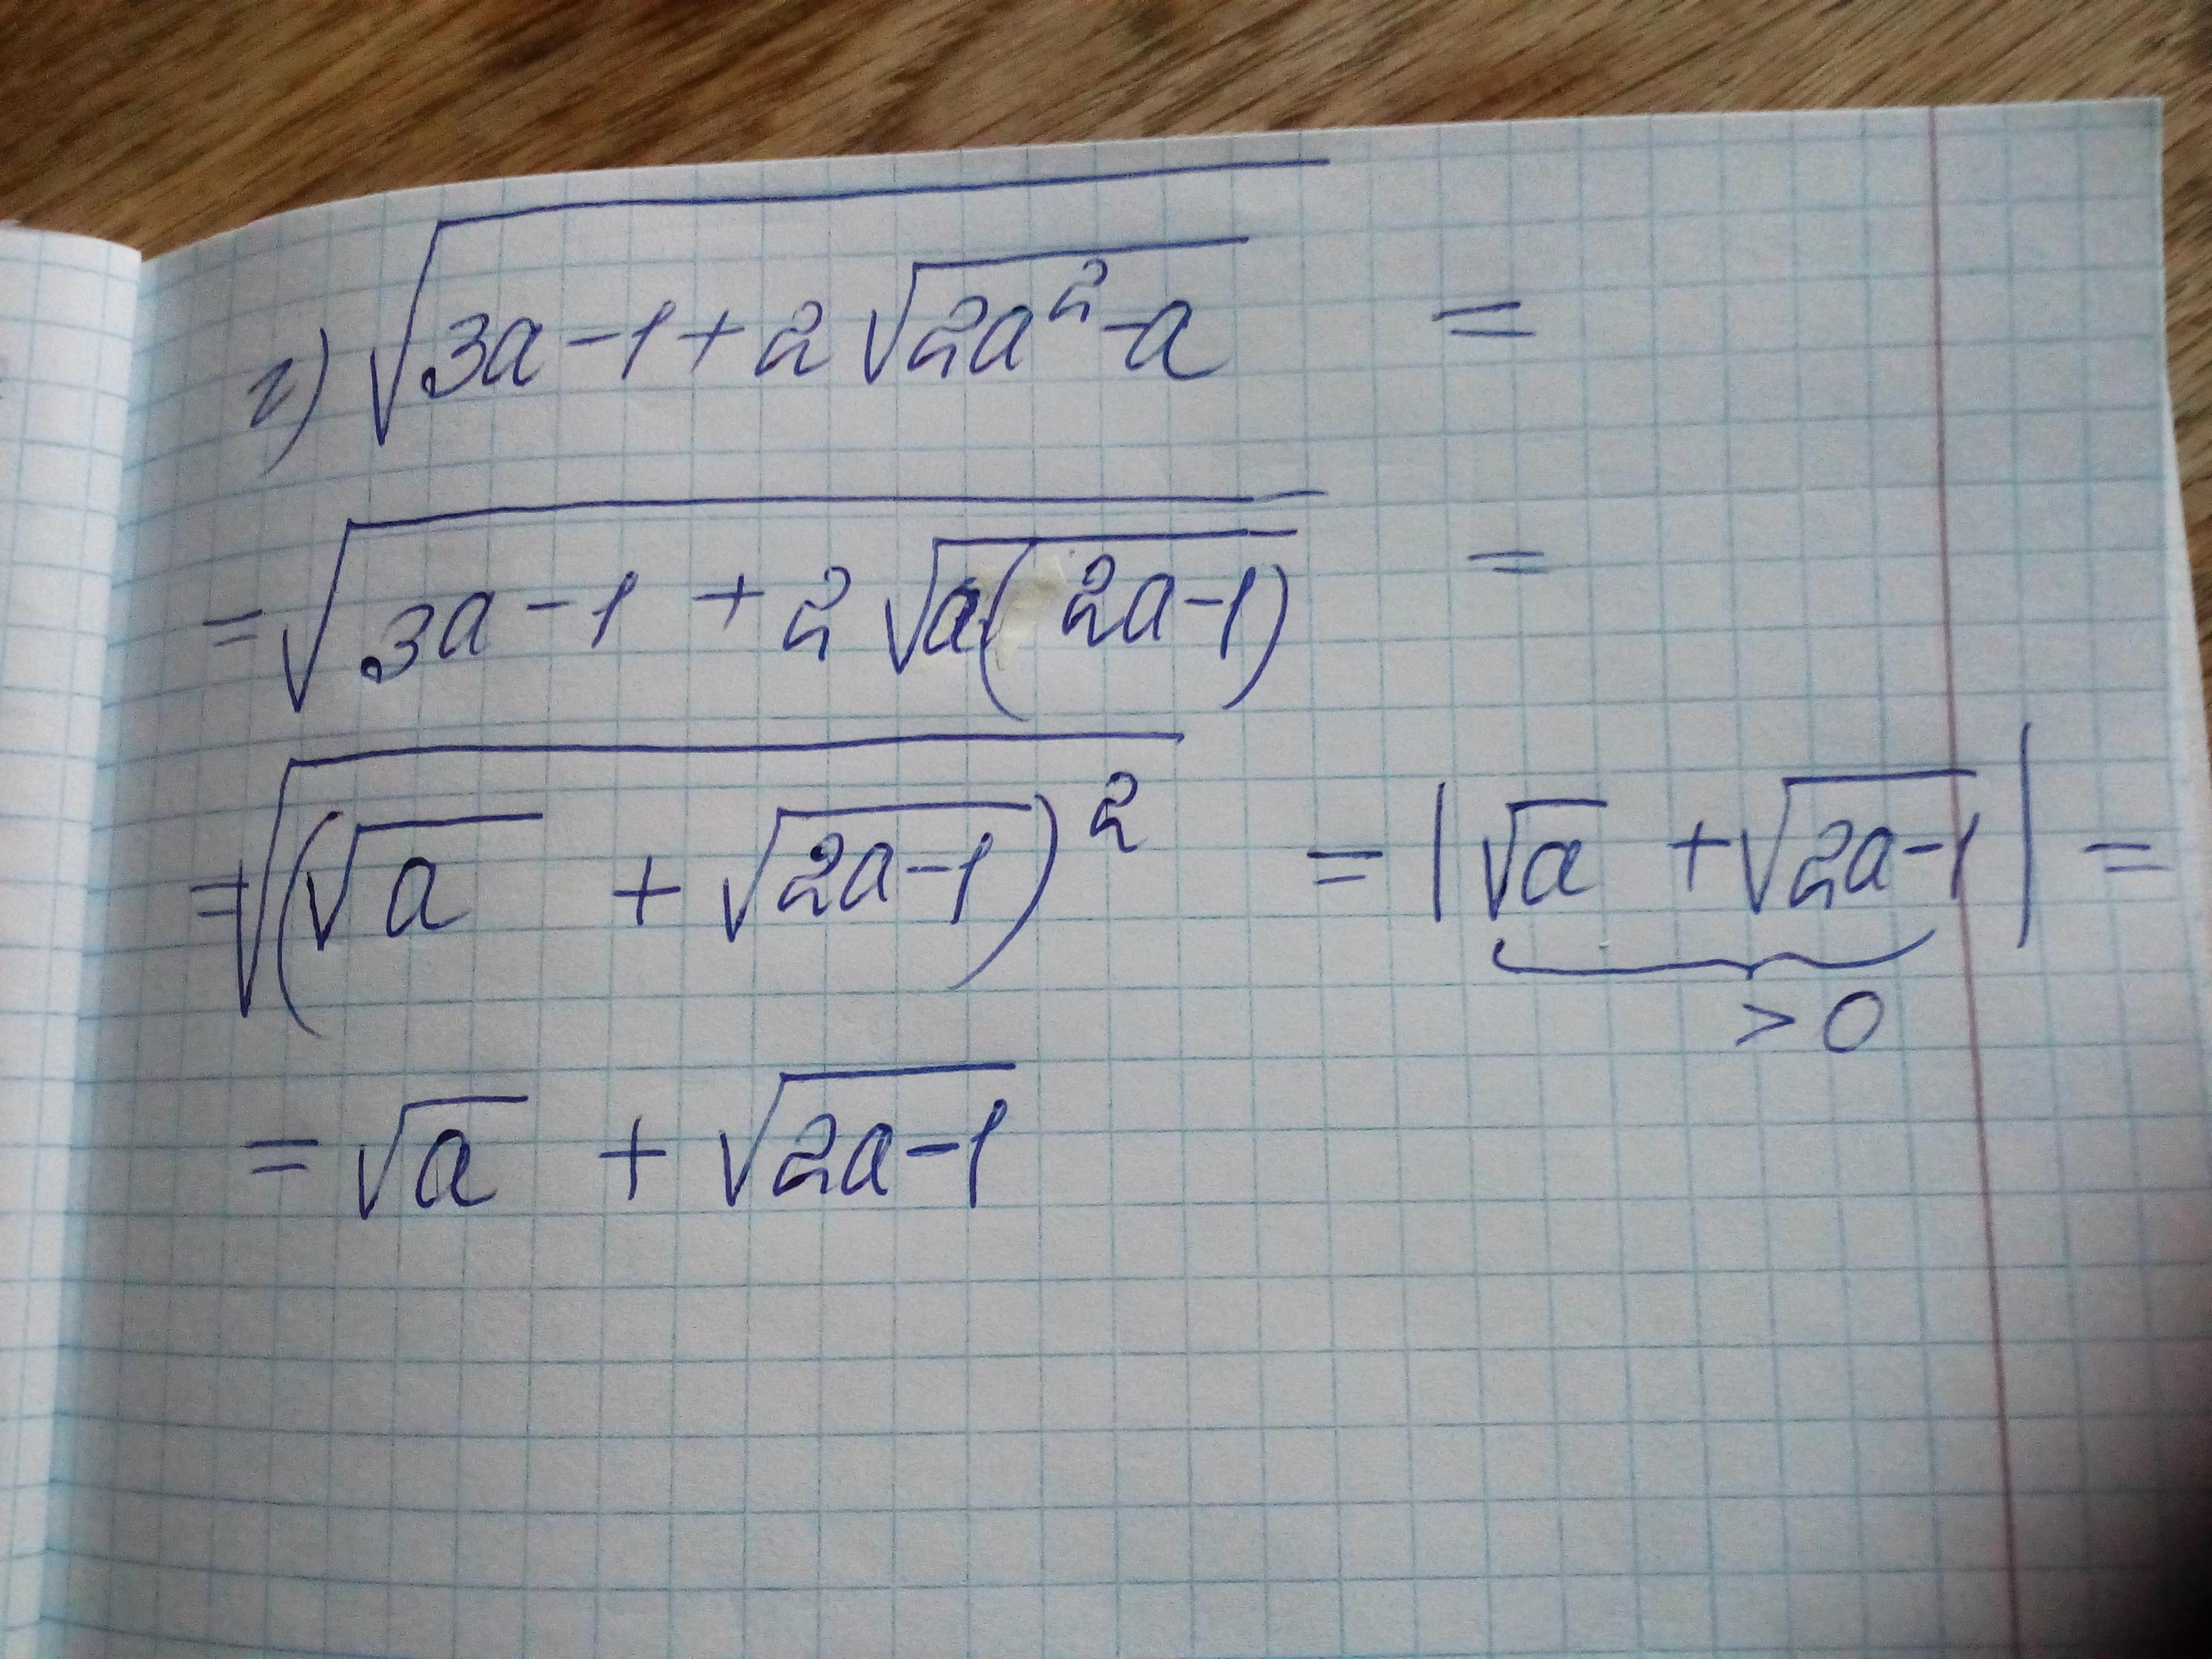 г) √(3a-1+2√(2a²-a)) =
= √(3a-1 + 2√(a(2a-1))) =
= √((√a + √(2a-1))²) = |√a + √(2a-1)| =
> 0
= √a + √(2a-1)